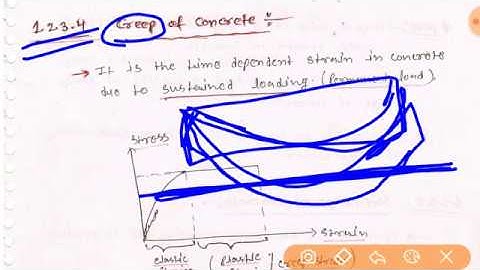 1.2.3.4 Creep of concrete :-
→ It is the time dependent strain in concrete
due to sustained loading. (Permanent load).
stress
strain
elastic (plastic / creep